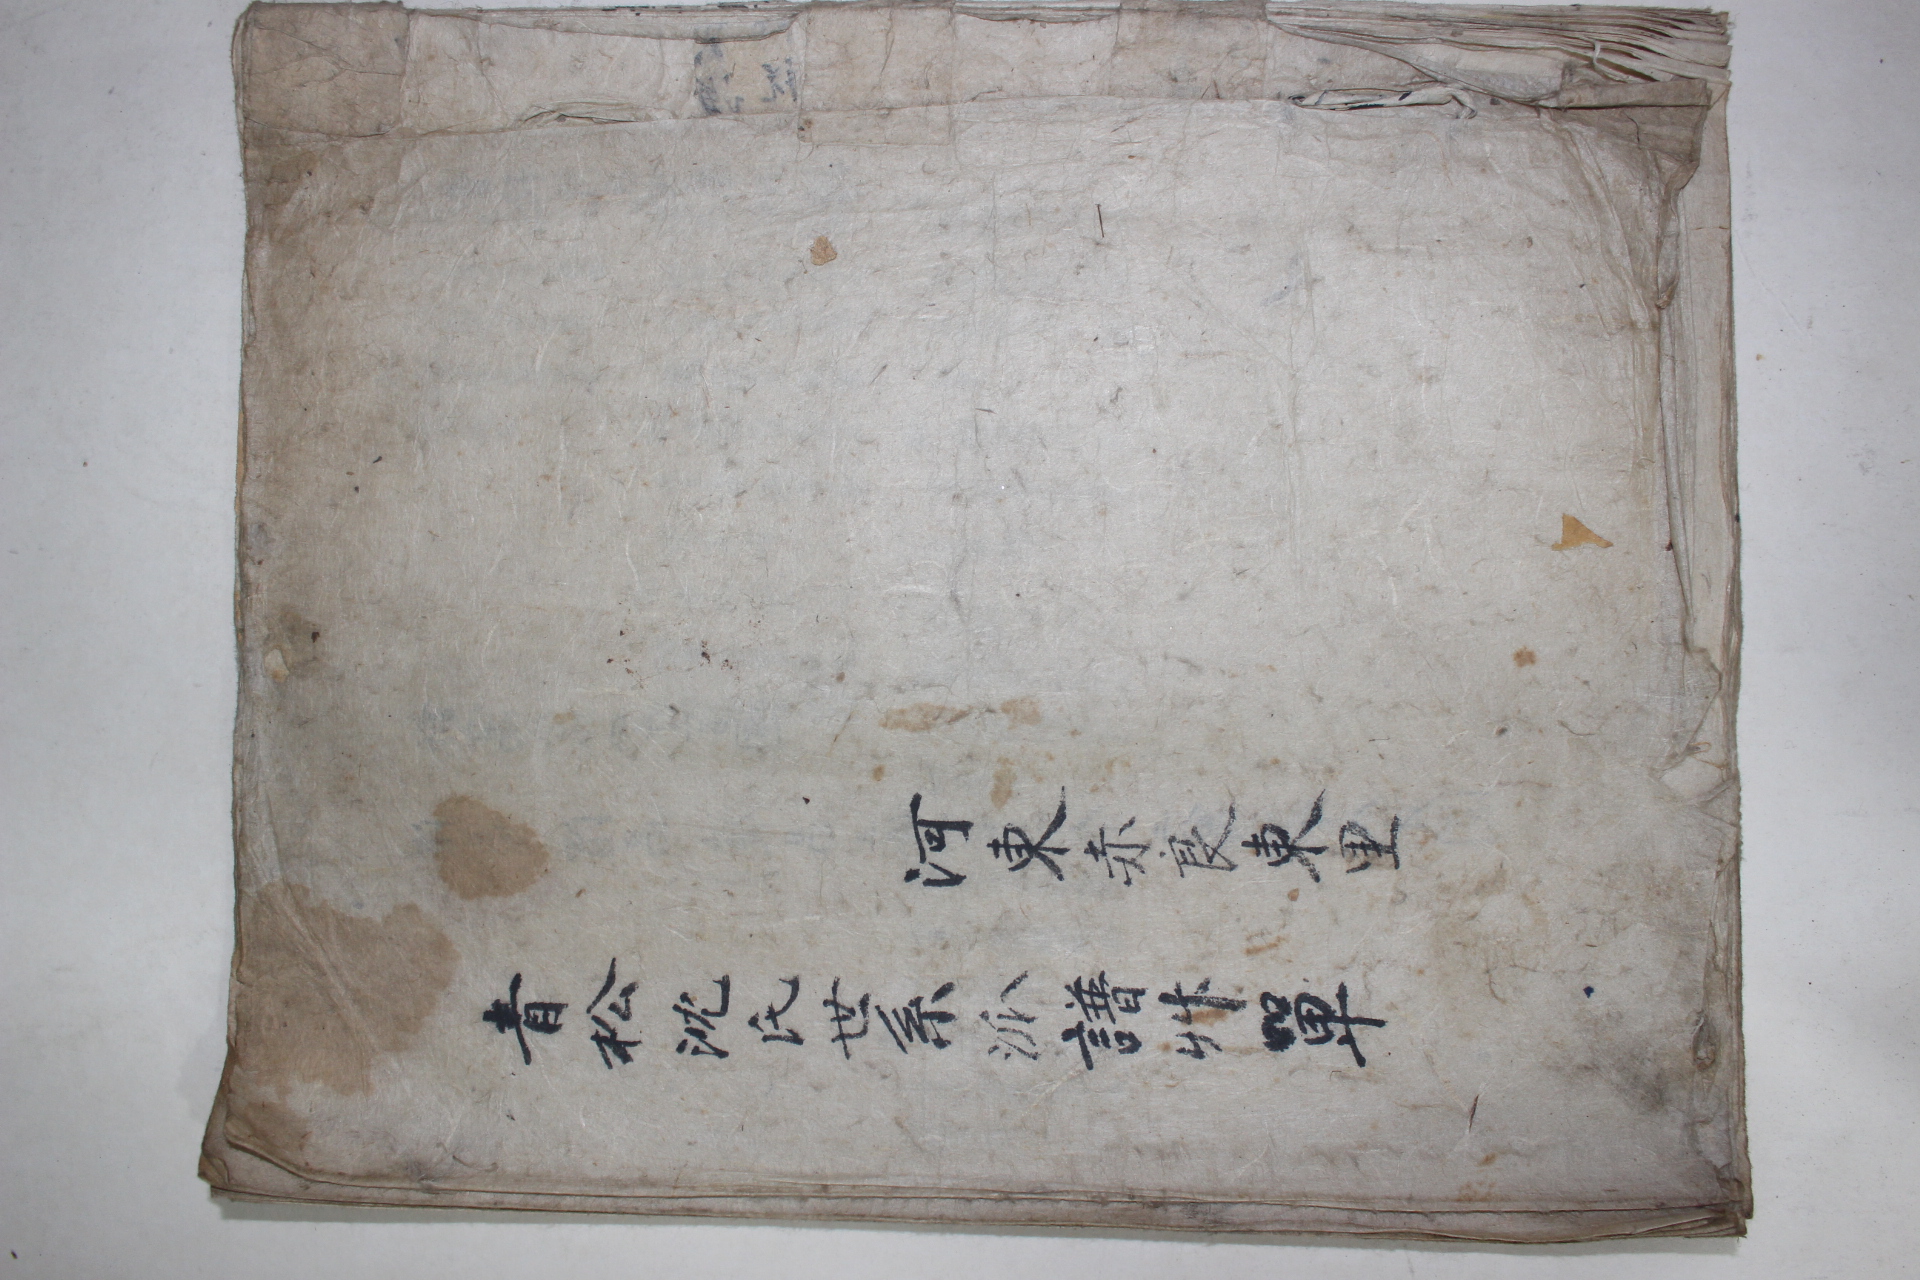 河東赤良東里
青松沈氏世系派譜艸單